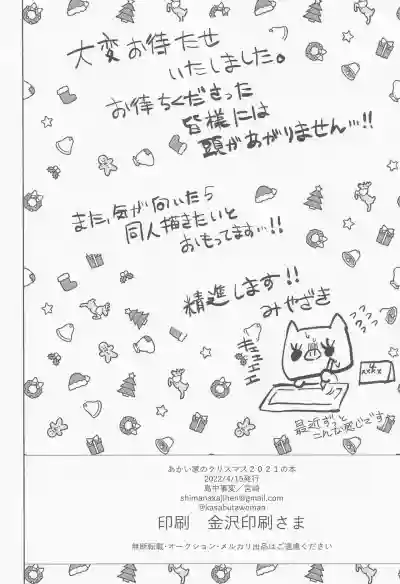 大変お待たせ
いたしました。
お待ちくださった
皆様には
頭があがりません…!!
また、気が向いたら
同人描きたいと
おもってます…!!
精進します!!
みやざき
キェェェェ
最近ずっと
こんな感じです
あかい家のクリスマス2021の本
2022/4/15発行
島中事変/宮崎
shimanakajihen@gmail.com
@kasabutawoman
印刷 金沢印刷さま
無断転載・オークション・メルカリ出品はご遠慮ください